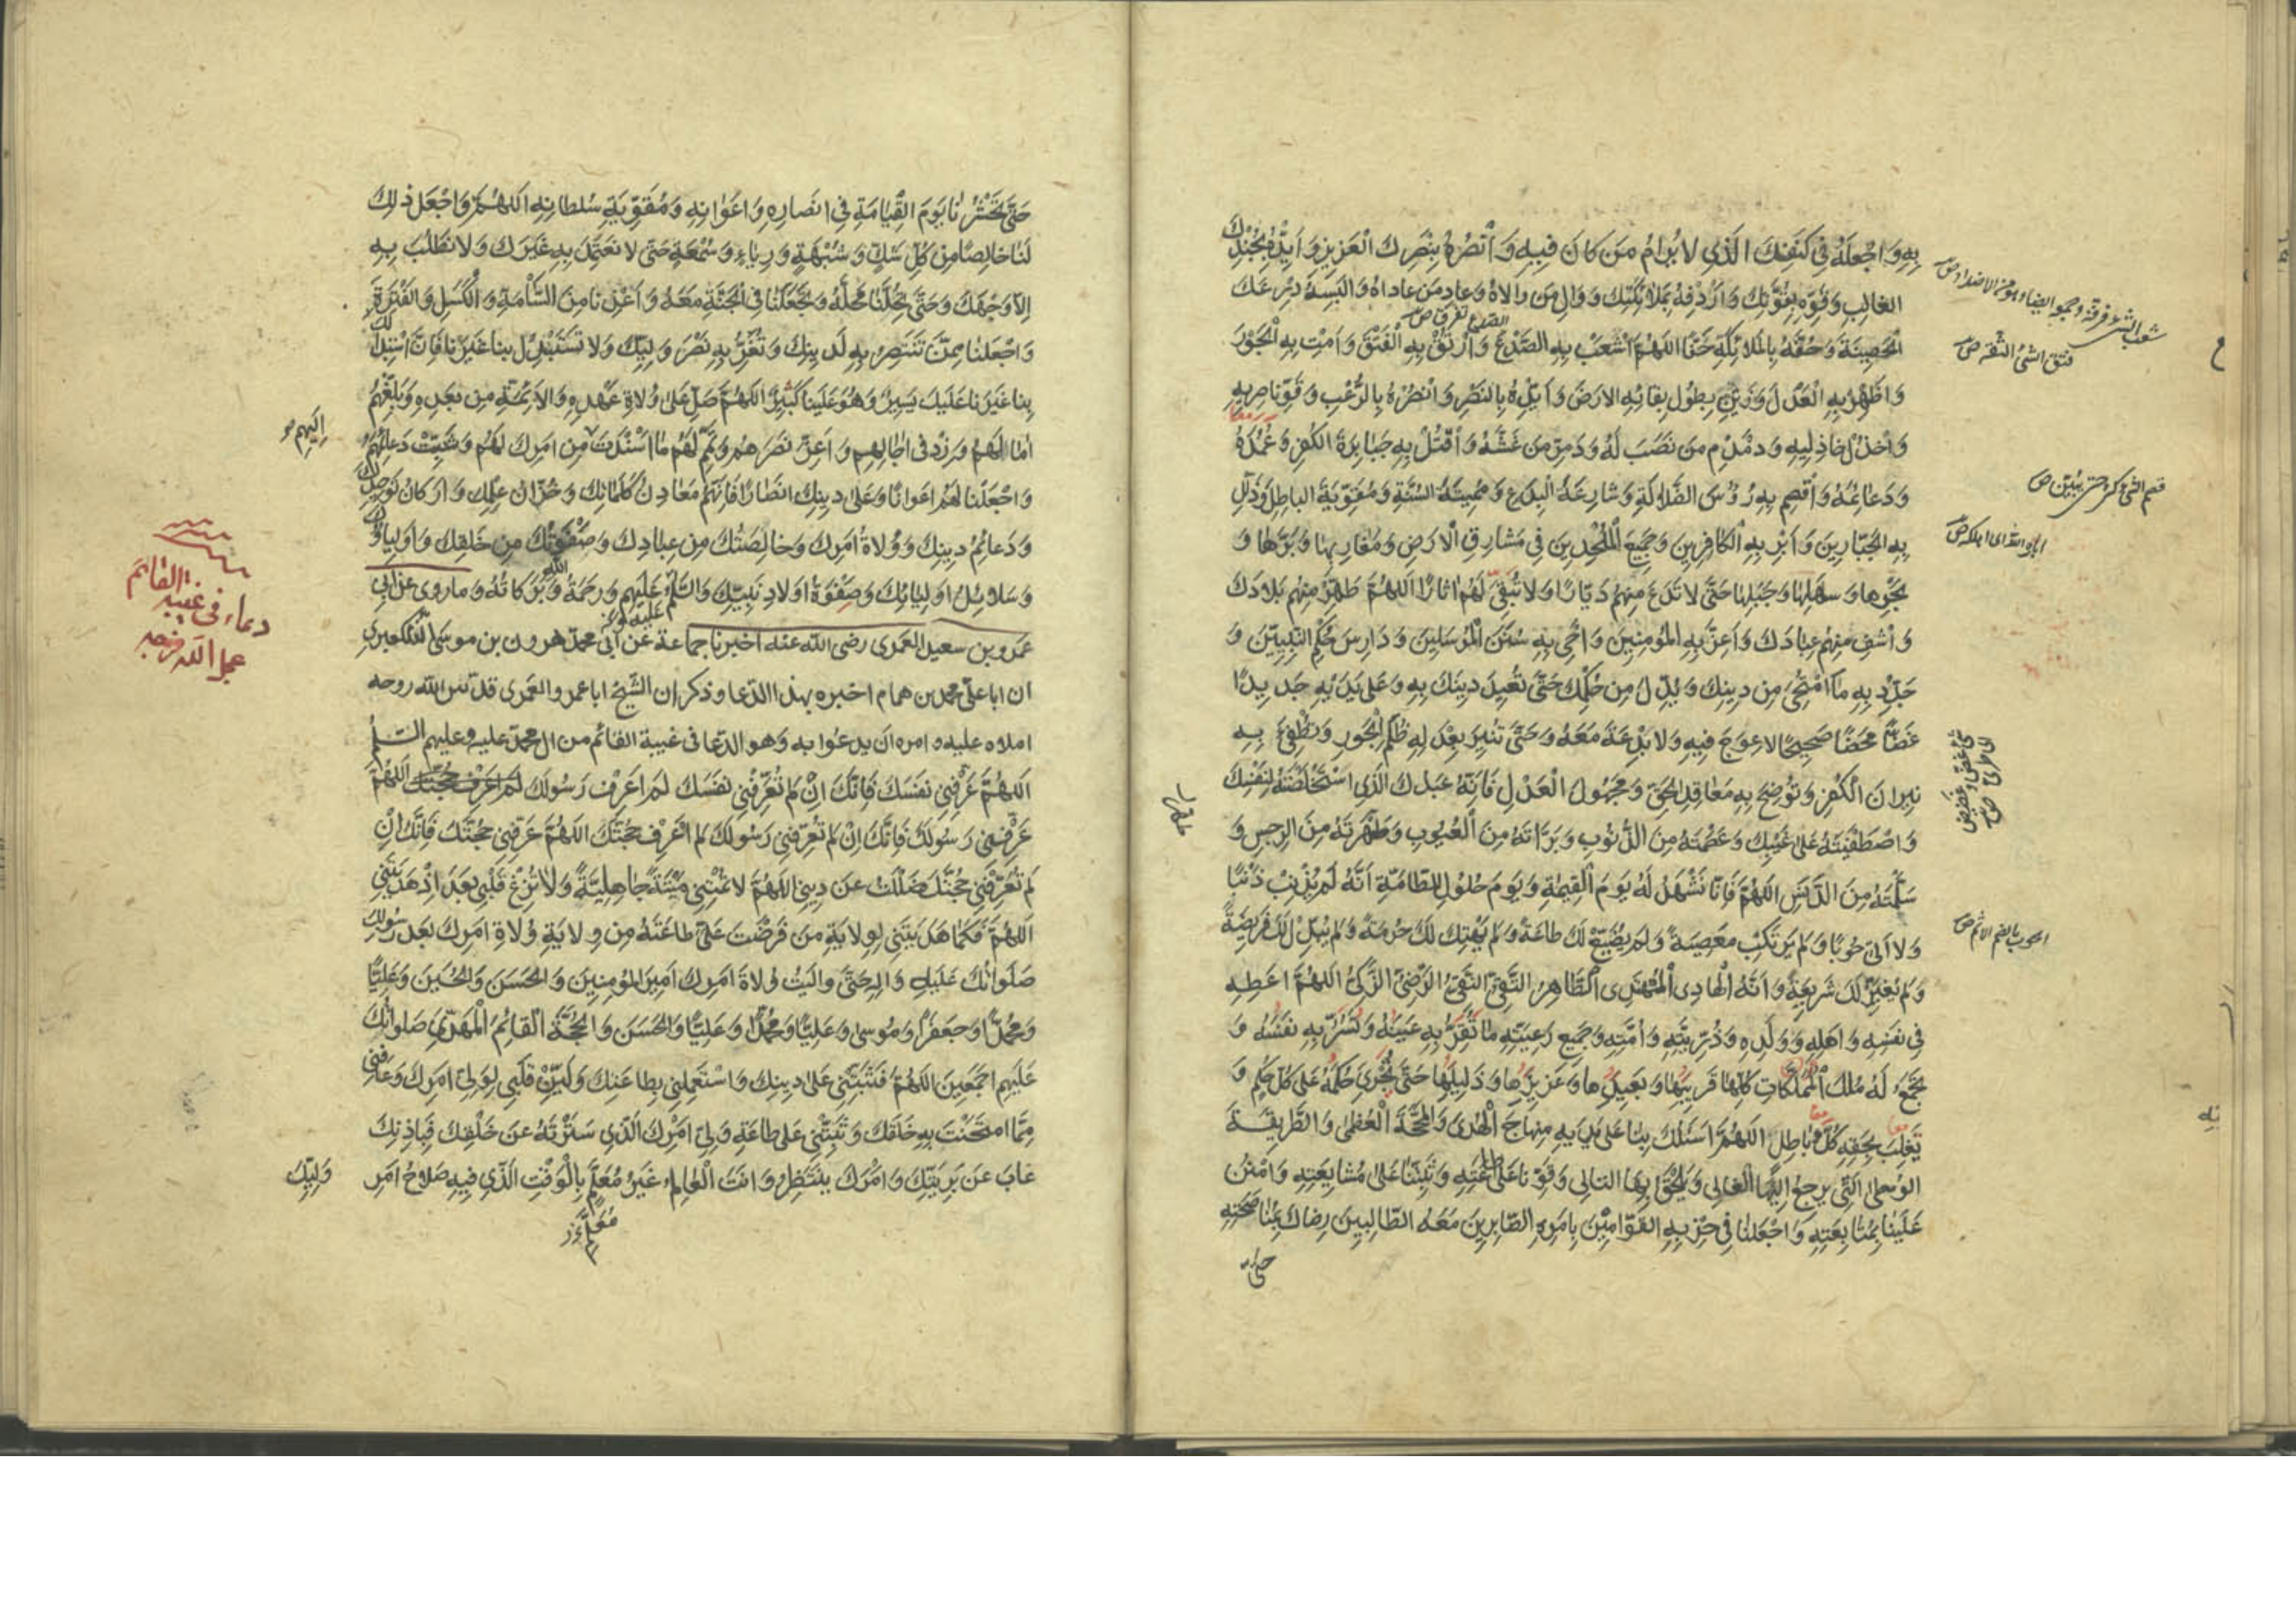 بِهِ وَاجْعَلْهُ فِي كَنَفِكَ الَّذِي لَا يُرَامُ مَنْ كَانَ فِيهِ وَانْصُرْهُ بِنَصْرِكَ الْعَزِيزِ وَأَيِّدْهُ بِجُنْدِكَ
الغالِبِ وَقَوِّهِ بِقُوَّتِكَ وَأَرْدِفْهُ بِمَلَائِكَتِكَ وَوَالِ مَنْ وَالَاهُ وَعَادِ مَنْ عَادَاهُ وَأَلْبِسْهُ دِرْعَكَ
الْحَصِينَةَ وَحُفَّهُ بِالْمَلَائِكَةِ حَفًّا اللَّهُمَّ اشْعَبْ بِهِ الصَّدْعَ وَارْتُقْ بِهِ الْفَتْقَ وَأَمِتْ بِهِ الْجَوْرَ
وَأَظْهِرْ بِهِ الْعَدْلَ وَزَيِّنْ بِطُولِ بَقَائِهِ الْأَرْضَ وَأَيِّدْهُ بِالنَّصْرِ وَانْصُرْهُ بِالرُّعْبِ وَقَوِّ نَاصِرِيهِ
وَاخْذُلْ خَاذِلِيهِ وَدَمْدِمْ مَنْ نَصَبَ لَهُ وَدَمِّرْ مَنْ غَشَّهُ وَاقْتُلْ بِهِ جَبَابِرَةَ الْكُفْرِ وَعُمُدَهُ
وَدَعَائِمَهُ وَاقْصِمْ بِهِ رُؤُسَ الضَّلَالَةِ وَشَارِعَةَ الْبِدَعِ وَمُمِيتَةَ السُّنَّةِ وَمُقَوِّيَةَ الْبَاطِلِ وَذَلِّلْ
بِهِ الْجَبَّارِينَ وَأَبِرْ بِهِ الْكَافِرِينَ وَجَمِيعَ الْمُلْحِدِينَ فِي مَشَارِقِ الْأَرْضِ وَمَغَارِبِهَا وَبَرِّهَا وَ
بَحْرِهَا وَسَهْلِهَا وَجَبَلِهَا حَتَّى لَا تَدَعَ مِنْهُمْ دَيَّارًا وَلَا تُبْقِيَ لَهُمْ آثَارًا اللَّهُمَّ طَهِّرْ مِنْهُمْ بِلَادَكَ
وَاشْفِ مِنْهُمْ عِبَادَكَ وَأَعِزَّ بِهِ الْمُؤْمِنِينَ وَأَحْيِ بِهِ سُنَنَ الْمُرْسَلِينَ وَدَارِسَ حُكْمِ النَّبِيِّينَ وَ
جَدِّدْ بِهِ مَا امْتَحَى مِنْ دِينِكَ وَبُدِّلَ مِنْ حُكْمِكَ حَتَّى تُعِيدَ دِينَكَ بِهِ وَعَلَى يَدَيْهِ جَدِيدًا
غَضًّا مَحْضًا صَحِيحًا لَا عِوَجَ فِيهِ وَلَا بِدْعَةَ مَعَهُ وَحَتَّى تُنِيرَ بِعَدْلِهِ ظُلَمَ الْجَوْرِ وَتُطْفِئَ بِهِ
نِيرَانَ الْكُفْرِ وَتُوضِحَ بِهِ مَعَاقِدَ الْحَقِّ وَمَجْهُولَ الْعَدْلِ فَإِنَّهُ عَبْدُكَ الَّذِي اسْتَخْلَصْتَهُ لِنَفْسِكَ
وَاصْطَفَيْتَهُ عَلَى غَيْبِكَ وَعَصَمْتَهُ مِنَ الذُّنُوبِ وَبَرَّأْتَهُ مِنَ الْعُيُوبِ وَطَهَّرْتَهُ مِنَ الرِّجْسِ وَ
سَلَّمْتَهُ مِنَ الدَّنَسِ اللَّهُمَّ فَإِنَّا نَشْهَدُ لَهُ يَوْمَ الْقِيمَةِ وَيَوْمَ حُلُولِ الطَّامَّةِ أَنَّهُ لَمْ يُذْنِبْ ذَنْبًا
وَلَا أَتَى حُوبًا وَلَمْ يَرْتَكِبْ مَعْصِيَةً وَلَمْ يُضَيِّعْ لَكَ طَاعَةً وَلَمْ يَهْتِكْ لَكَ حُرْمَةً وَلَمْ يُبَدِّلْ لَكَ فَرِيضَةً
وَلَمْ يُغَيِّرْ لَكَ شَرِيعَةً وَأَنَّهُ الْهَادِي الْمُهْتَدِي الطَّاهِرُ التَّقِيُّ النَّقِيُّ الرَّضِيُّ الزَّكِيُّ اللَّهُمَّ أَعْطِهِ
فِي نَفْسِهِ وَأَهْلِهِ وَوَلَدِهِ وَذُرِّيَّتِهِ وَأُمَّتِهِ وَجَمِيعِ رَعِيَّتِهِ مَا تُقِرُّ بِهِ عَيْنَهُ وَتَسُرُّ بِهِ نَفْسَهُ وَ
تَجْمَعُ لَهُ مُلْكَ الْمُمْلَكَاتِ كُلِّهَا قَرِيبِهَا وَبَعِيدِهَا وَعَزِيزِهَا وَذَلِيلِهَا حَتَّى يُجْرِيَ حُكْمَهُ عَلَى كُلِّ حُكْمٍ وَ
يَغْلِبَ بِحَقِّهِ كُلَّ بَاطِلٍ اللَّهُمَّ اسْلُكْ بِنَا عَلَى يَدَيْهِ مِنْهَاجَ الْهُدَى وَالْمَحَجَّةَ الْعُظْمَى وَالطَّرِيقَةَ
الْوُسْطَى الَّتِي يَرْجِعُ إِلَيْهَا الْغَالِي وَيَلْحَقُ بِهَا التَّالِي وَقَوِّنَا عَلَى طَاعَتِهِ وَثَبِّتْنَا عَلَى مُشَايَعَتِهِ وَامْنُنْ
عَلَيْنَا بِمُتَابَعَتِهِ وَاجْعَلْنَا فِي حِزْبِهِ الْقَوَّامِينَ بِأَمْرِهِ الصَّابِرِينَ مَعَهُ الطَّالِبِينَ رِضَاكَ بِمُنَاصَحَتِهِ
حتى
فتق الشئ شقه ص
قصم الشئ كسره حتى يبين ص
اباره الله اى اهلكه ص
الحوب بالضم الاثم ص
حَتَّى تَحْشُرَنَا يَوْمَ الْقِيَامَةِ فِي أَنْصَارِهِ وَأَعْوَانِهِ وَمُقَوِّيَةِ سُلْطَانِهِ اللَّهُمَّ وَاجْعَلْ ذَلِكَ
لَنَا خَالِصًا مِنْ كُلِّ شَكٍّ وَشُبْهَةٍ وَرِيَاءٍ وَسُمْعَةٍ حَتَّى لَا نَعْتَمِدَ بِهِ غَيْرَكَ وَلَا نَطْلُبَ بِهِ
إِلَّا وَجْهَكَ وَحَتَّى تُحِلَّنَا مَحَلَّهُ وَتَجْعَلَنَا فِي الْجَنَّةِ مَعَهُ وَأَعِذْنَا مِنَ السَّأْمَةِ وَالْكَسَلِ وَالْفَتْرَةِ
وَاجْعَلْنَا مِمَّنْ تَنْتَصِرُ بِهِ لِدِينِكَ وَتُعِزُّ بِهِ نَصْرَ وَلِيِّكَ وَلَا تَسْتَبْدِلْ بِنَا غَيْرَنَا فَإِنَّ اسْتِبْدَالَكَ
بِنَا غَيْرَنَا عَلَيْكَ يَسِيرٌ وَهُوَ عَلَيْنَا كَثِيرٌ اللَّهُمَّ صَلِّ عَلَى وُلَاةِ عَهْدِهِ وَالْأَئِمَّةِ مِنْ بَعْدِهِ وَبَلِّغْهُمْ
آمَالَهُمْ وَزِدْ فِي آجَالِهِمْ وَأَعِزَّ نَصْرَهُمْ وَتَمِّمْ لَهُمْ مَا أَسْنَدْتَ مِنْ أَمْرِكَ لَهُمْ وَثَبِّتْ دَعَائِمَهُمْ
إِلَيْهِمْ
وَاجْعَلْنَا لَهُمْ أَعْوَانًا وَعَلَى دِينِكَ أَنْصَارًا فَإِنَّهُمْ مَعَادِنُ كَلِمَاتِكَ وَخُزَّانُ عِلْمِكَ وَأَرْكَانُ تَوْحِيدِكَ
وَدَعَائِمُ دِينِكَ وَوُلَاةُ أَمْرِكَ وَخَالِصَتُكَ مِنْ عِبَادِكَ وَصَفْوَتُكَ مِنْ خَلْقِكَ وَأَوْلِيَاؤُكَ
وَسَلَائِلُ أَوْلِيَائِكَ وَصَفْوَةُ أَوْلَادِ نَبِيِّكَ وَالسَّلَامُ عَلَيْهِمْ وَرَحْمَةُ اللَّهِ وَبَرَكَاتُهُ وما روى عن ابى
عمرو بن سعيد العمرى رضى الله عنه اخبرنا جماعة عن ابى محمد هرون بن موسى التلعكبرى
ان ابا على محمد بن همام اخبره بهذا الدعا وذكر ان الشيخ ابا عمرو العمرى قدس الله روحه
املاه عليه وامره ان يدعوا به وهو الدعا فى غيبة القائم من ال محمد عليه وعليهم السلم
اللَّهُمَّ عَرِّفْنِي نَفْسَكَ فَإِنَّكَ إِنْ لَمْ تُعَرِّفْنِي نَفْسَكَ لَمْ أَعْرِفْ رَسُولَكَ لم اعرف حجتك اللَّهُمَّ
عَرِّفْنِي رَسُولَكَ فَإِنَّكَ إِنْ لَمْ تُعَرِّفْنِي رَسُولَكَ لَمْ أَعْرِفْ حُجَّتَكَ اللَّهُمَّ عَرِّفْنِي حُجَّتَكَ فَإِنَّكَ إِنْ
لَمْ تُعَرِّفْنِي حُجَّتَكَ ضَلَلْتُ عَنْ دِينِي اللَّهُمَّ لَا تُمِتْنِي مِيتَةً جَاهِلِيَّةً وَلَا تُزِغْ قَلْبِي بَعْدَ إِذْ هَدَيْتَنِي
اللَّهُمَّ فَكَمَا هَدَيْتَنِي لِوِلَايَةِ مَنْ فَرَضْتَ عَلَيَّ طَاعَتَهُ مِنْ وِلَايَةِ وُلَاةِ أَمْرِكَ بَعْدَ رَسُولِكَ
صَلَوَاتُكَ عَلَيْهِ وَآلِهِ حَتَّى وَالَيْتُ وُلَاةَ أَمْرِكَ أَمِيرَ الْمُؤْمِنِينَ وَالْحَسَنَ وَالْحُسَيْنَ وَعَلِيًّا
وَمُحَمَّدًا وَجَعْفَرًا وَمُوسَى وَعَلِيًّا وَمُحَمَّدًا وَعَلِيًّا وَالْحَسَنَ وَالْحُجَّةَ الْقَائِمَ الْمَهْدِيَّ صَلَوَاتُكَ
عَلَيْهِمْ أَجْمَعِينَ اللَّهُمَّ فَثَبِّتْنِي عَلَى دِينِكَ وَاسْتَعْمِلْنِي بِطَاعَتِكَ وَلَيِّنْ قَلْبِي لِوَلِيِّ أَمْرِكَ وَعَافِنِي
مِمَّا امْتَحَنْتَ بِهِ خَلْقَكَ وَثَبِّتْنِي عَلَى طَاعَةِ وَلِيِّ أَمْرِكَ الَّذِي سَتَرْتَهُ عَنْ خَلْقِكَ فَبِإِذْنِكَ
غَابَ عَنْ بَرِيَّتِكَ وَأَمْرَكَ يَنْتَظِرُ وَأَنْتَ الْعَالِمُ غَيْرُ مُعَلَّمٍ بِالْوَقْتِ الَّذِي فِيهِ صَلَاحُ أَمْرِ
وَلِيِّكَ
دعاء فى غيبة القائم
عجل الله فرجه